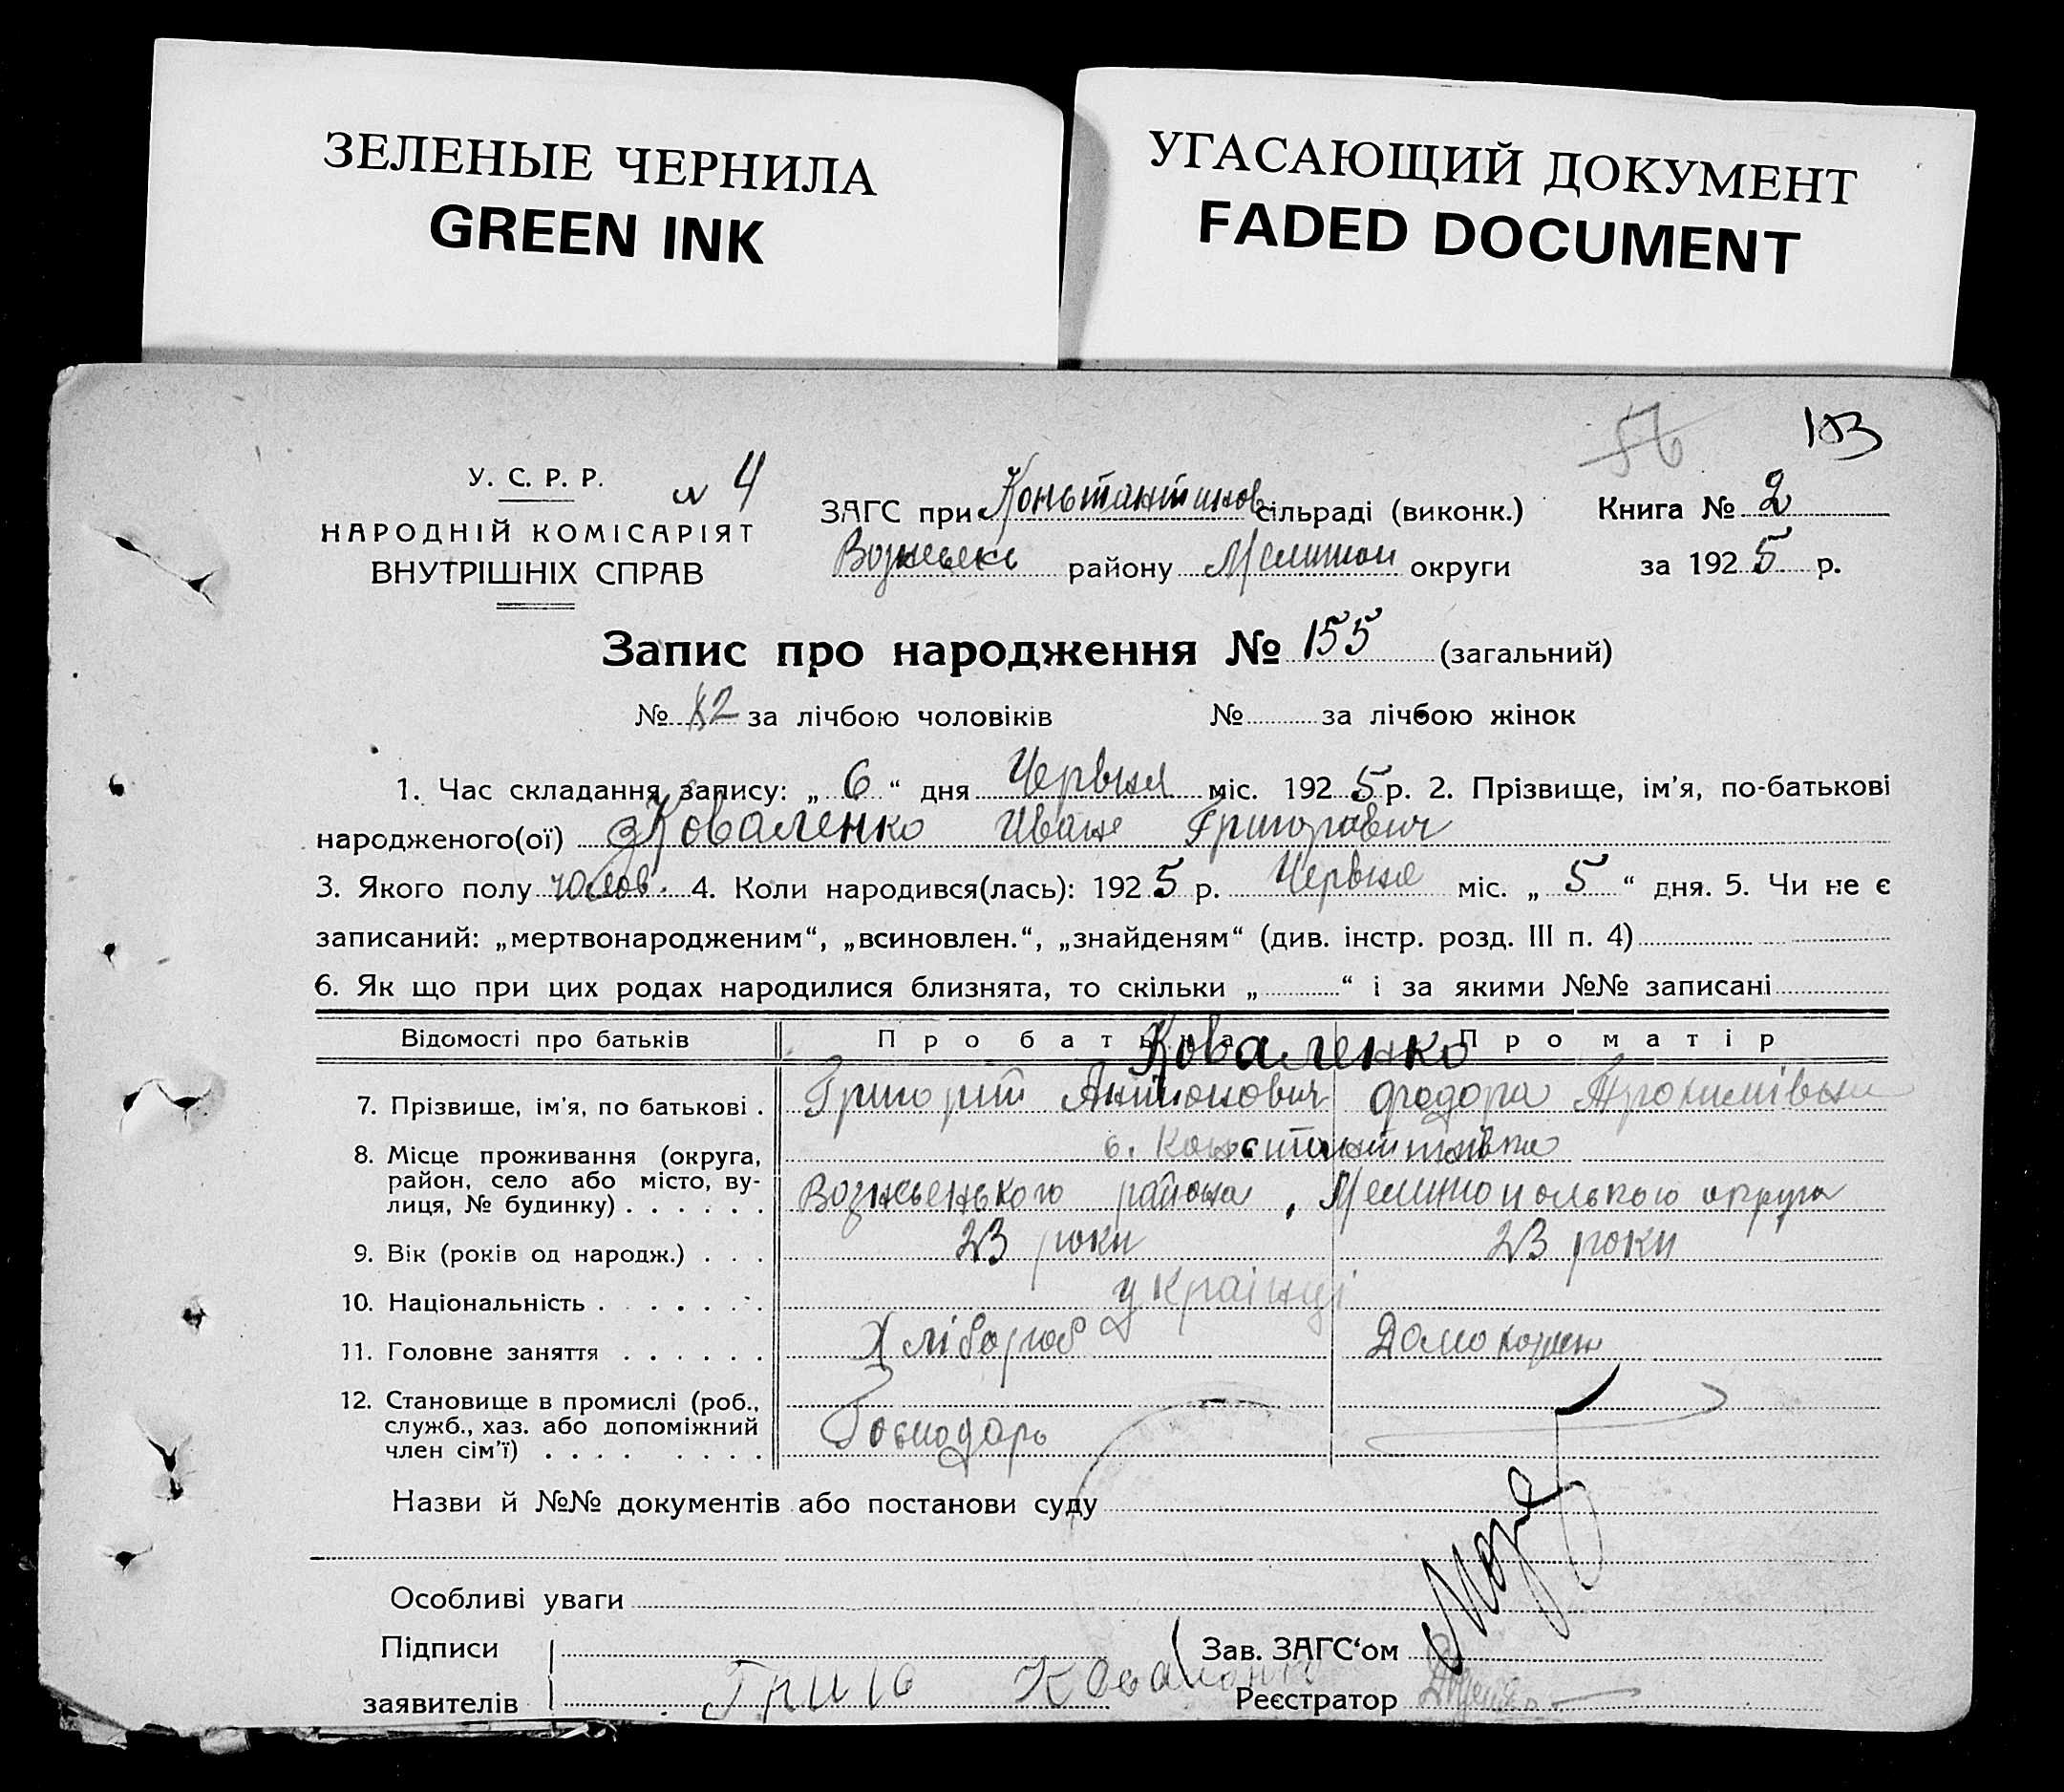 ЗЕЛЕНЫЕ ЧЕРНИЛА
GREEN INK
УГАСАЮЩИЙ ДОКУМЕНТ
FADED DOCUMENT
56 103
У. С. Р. Р. № 4
НАРОДНІЙ КОМІСАРІЯТ
ВНУТРІШНІХ СПРАВ
ЗАГС при Коньтантинов сільраді (виконк.) Книга № 2
Вознесекс району Мелитоп округи за 1925 р.
Запис про народження № 155 (загальний)
№ 82 за лічбою чоловіків № за лічбою жінок
1. Час складання запису: „ 6 “ дня Червня міс. 1925 р. 2. Прізвище, ім'я, по-батькові
народженого(ої) Коваленко Иван Григоравич
3. Якого полу чолов. 4. Коли народився(лась): 1925 р. Червня міс. „ 5 “ дня. 5. Чи не є
записаний: „мертвонародженим“, „всиновлен.“, „знайденям“ (див. інстр. розд. III п. 4)
6. Як що при цих родах народилися близнята, то скільки „ “ і за якими №№ записані
Відомості про батьків Про батька Про матір
Коваленко
7. Прізвище, ім'я, по батькові . Григорий Антонович Федора Трохимівна
8. Місце проживання (округа, район, село або місто, вулиця, № будинку) . . . . . . с. Константинівка
Вознсенького района, Мелитопольского округа
9. Вік (років од народж.) . . . 23 роки 23 роки
10. Національність . . . . . . . українці
11. Головне заняття . . . . . . Хлібороб Домохозяен
12. Становище в промислі (роб., служб., хаз. або допоміжний член сім'ї) . . . . . . . . Господарь
Назви й №№ документів або постанови суду
Особливі уваги
Підписи Зав. ЗАГС‘ом
заявителів Григ Коваленко Реєстратор